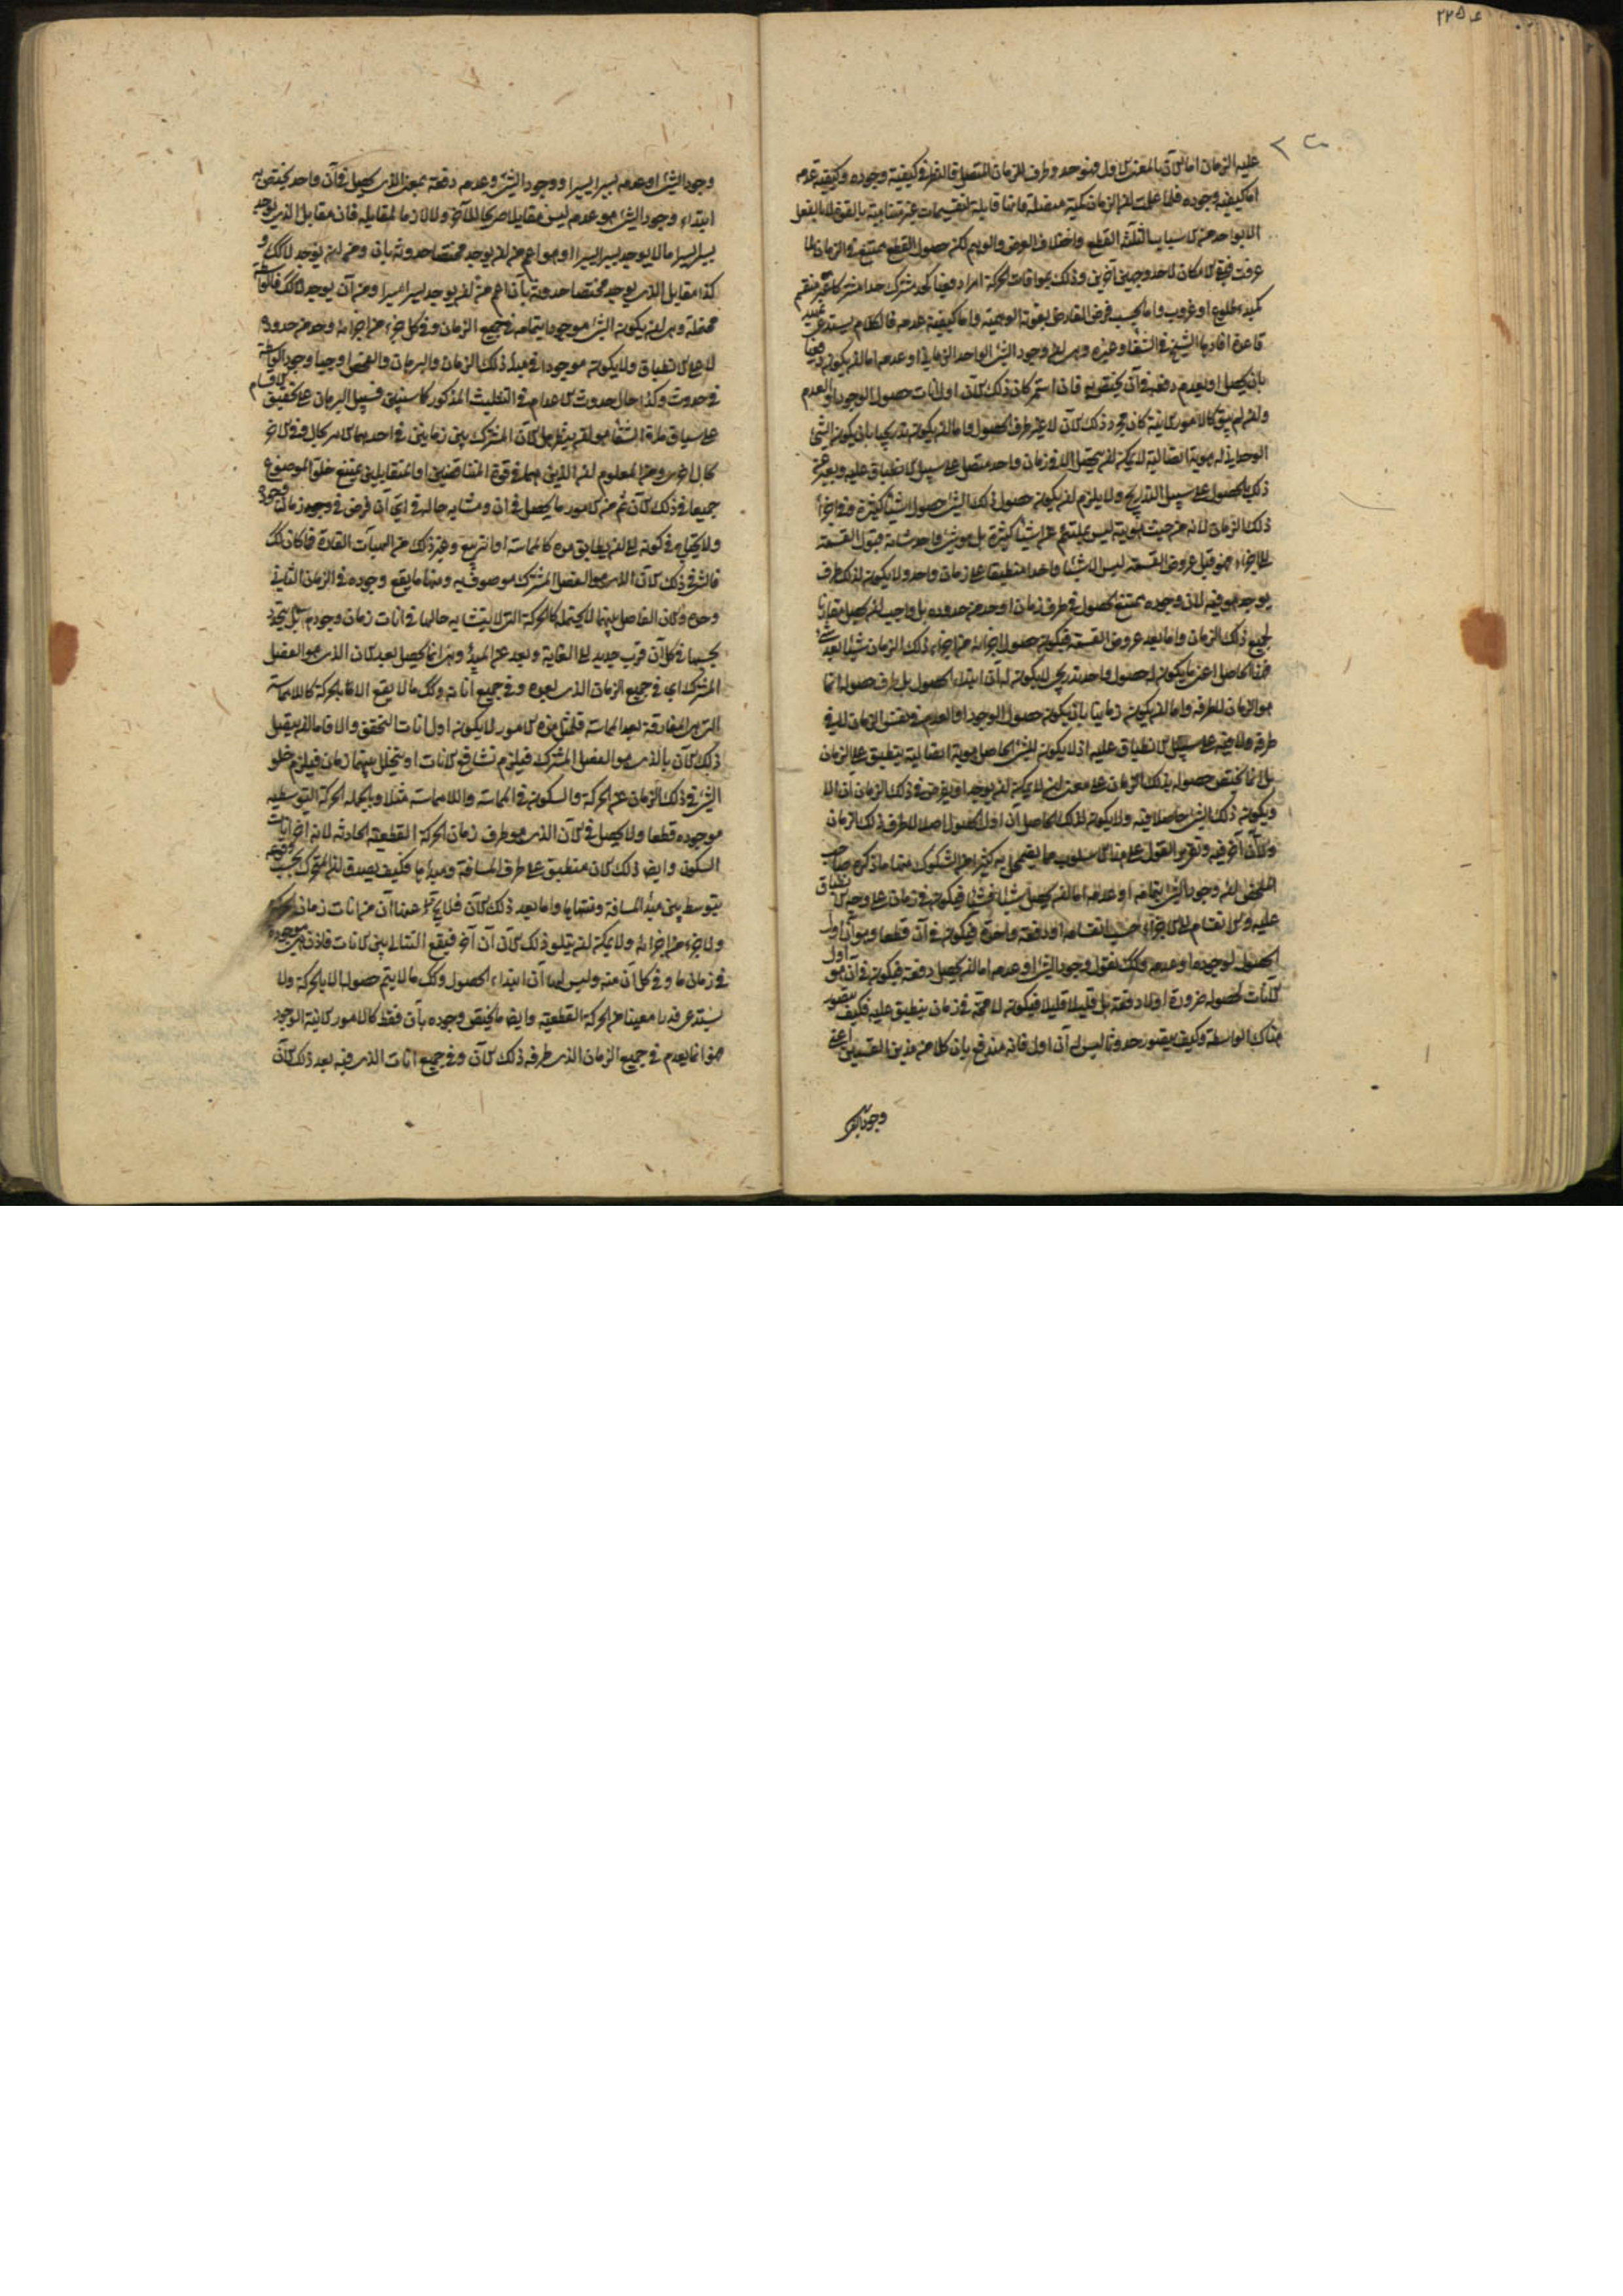 عليه الزمان اما الآن بالمعنى الاول فهو حد وطرف للزمان المتصل فالنظر في كيفية وجوده وكيفية عدمه
اما كيفية وجوده فلما علمت ان الزمان كمية متصلة فانها قابلة لتقسيمات غير متناهية بالقوة لا بالفعل
الا بواحد من الاسباب الثلثة القطع واختلاف العرض والوهم لكن حصول القطع ممتنع في الزمان لما
عرفت فبقي لامكان الاخذ وجهين آخرين وذلك بموافات الحركة امرا دفعيا كحد مشترك حدا مشتركا غير منقسم
كمبدء طلوع او غروب واما بحسب فرض الفارض بقوته الوهمية واما كيفية عدمه فالكلام يستدعي تمهيد
قاعدة افادها الشيخ في الشفاء وغيره وهي ان وجود الشئ الواحد الزماني او عدمه اما ان يكون دفعيا
بان يحصل او يعدم دفعة في آن يختص به فان استمر كان ذلك الآن اول آنات حصول الوجود او العدم
وان لم يبق كالامور الآنية كان مجرد ذلك الآن لا غير ظرف الحصول واما ان يكون تدريجيا بان يكون الشئ
الوحداني له هوية اتصالية لا يمكن ان يتحصل الا في زمان واحد متصل على سبيل الانطباق عليه ويعبر عن
ذلك بالحصول على سبيل التدريج ولا يلزم ان يكون حصول ذلك الشئ حصول اشياء كثيرة في اجزاء
ذلك الزمان لانه من حيث الهوية ليس بملتئم عن اشياء كثيرة بل هو شئ واحد شانه قبول القسمة
الى اجزاء فهو قبل عروض القسمة ليس الا شيئا واحدا منطبقا على زمان واحد ولا يكون لذلك طرف
يوجد هو فيه لان وجوده يمتنع الحصول في طرف زمان او حد من حدوده بل واجب ان يحصل مقارنا
لجميع ذلك الزمان واما بعد عروض القسمة فيكون حصول اجزائه في اجزاء ذلك الزمان شيئا بعد شئ
فهذا الحاصل اعني ما يكون له حصول واحد تدريجي لا يكون له آن ابتداء الحصول بل ظرف حصوله انما
هو الزمان لا طرفه واما ان يكون زمانيا بان يكون حصول الوجود او العدم في نفس الزمان لا في
طرفه ولا فيه على سبيل الانطباق عليه اذ لا يكون للشئ الحاصل هوية اتصالية ينطبق على الزمان
بل انما يختص حصوله بذلك الزمان على معنى انه لا يمكن ان يوجد او يفرض في ذلك الزمان آن الا
ويكون ذلك الشئ حاصلا فيه ولا يكون لذلك الحاصل آن اول الحصول اصلا لا طرف ذلك الزمان
ولا آن آخر فيه وتقرير القول على هذا الاسلوب مما يضمحل به كثير من الشكوك منها ما ذكره صاحب
الملخص ان وجود الشئ بتمامه او عدمه اما ان يحصل شيئا فشيئا فيكون في زمان على وجه الانطباق
عليه والانقسام الى الاجزاء حسب انقسامه او دفعة واحدة فيكون في آن قطعا وهو آن اول
الحصول لوجوده او عدمه وكك نقول وجود الشئ او عدمه اما ان يحصل دفعة فيكون في آن هو اول
الآنات لحصوله ضرورة او لا دفعة بل قليلا قليلا فيكون لا محة في زمان ينطبق عليه فكيف يتصور
هناك الواسطة وكيف يتصور حدوث ليس له آن اول فانه مندفع بان كلا من هذين القسمين اعني
وجود الشئ
وجود الشئ او عدمه يسيرا يسيرا ووجود الشئ وعدمه دفعة بمعنى الذي يحصل في آن واحد يختص به
ابتداء وجود الشئ هو عدمه ليس مقابلا صريحا للآخر ولا لازما لمقابله فان مقابل الذي يوجد
يسيرا يسيرا ما لا يوجد يسيرا يسيرا وهو اعم من ان يوجد مختصا حدوثه بآن ومن ان يوجد لا كك و
كذا مقابل الذي يوجد مختصا حدوثه بآن اعم من ان يوجد يسيرا يسيرا ومن ان يوجد لا كك فالواسطة
محتملة وهي ان يكون الشئ موجودا بتمامه في جميع الزمان وفي كل جزء من اجزائه وحد من حدوده
لا على الانطباق ولا يكون موجودا في مبدء ذلك الزمان والبرهان والفحص اوجبا وجود الواسطة
في حدوث وكذا حال حدوث الاعدام في التثليث المذكور كما سنبين فسبيل البرهان على تحقيق الاقسام
على سياق ما في الشفاء هو انه ينظر هل الآن المشترك بين زمانين في احدهما الامر بحال وفي الآخر
بحال اخرى ومن المعلوم ان الذين هما في قوة المتناقضين او المتقابلين يمتنع خلو الموضوع
جميعا في ذلك الآن ثم من الامور ما يحصل في آن ومتشابه حاله في اي آن فرض في وجه زمان وجوده
ولا يحتاج في كونه الى ان يطابق مدة كالمماسة او التربيع وغير ذلك من الهيآت القارة فما كان كك
فالشئ في ذلك الآن الذي هو الفصل المشترك موصوف به ومنها ما يقع وجوده في الزمان الثاني
وحده والآن الفاصل بينهما لا يحتمله كالحركة التي لا يتشابه حالها في آنات زمان وجودها بل يتجدد
بحسبها في كل آن قرب جديد الى الغاية وبعد عن المبدء وهي انما يحصل بعد الآن الذي هو الفصل
المشترك اي في جميع الزمان الذي بعده وفي جميع آناته وكك ما لا يقع الا بالحركة كاللامماسة
التي هي المفارقة بعد المماسة فلمثل هذه الامور لا يكون اول آنات التحقق والا فاما ان يتصل
ذلك الآن بالذي هو الفصل المشترك فيلزم تشافع الآنات او يتخلل بينهما زمان فيلزم خلو
الشئ في ذلك الزمان عن الحركة والسكون في المماسة واللامماسة مثلا وبالجملة الحركة التوسطية
موجودة قطعا ولا يحصل في الآن الذي هو طرف زمان الحركة القطعية الحادثة لانه آخر آنات
السكون وايض ذلك الآن منطبق على طرف المسافة ومبدأها فكيف يصدق ان المتحرك بحسب وقوعه
يتوسط بين مبدأ المسافة ومنتهاها واما بعد ذلك الآن فلا يتأخر عنها آن من آنات زمان
ولا جزء من اجزائه ولا يمكن ان يتلو ذلك الآن آن آخر فيقع التتالى بين الآنات فاذن هي موجودة
في زمان ما وفي كل آن منه وليس لها آن ابتداء الحصول وكك ما لا يتم حصوله الا بالحركة ولا
يستدعي قدرا معينا من الحركة القطعية وايض ما يختص وجوده بآن فقط كالامور الآنية الوجود
فهو انما يعدم في جميع الزمان الذي طرفه ذلك الآن وفي جميع آنات الذي فيه بعد ذلك الآن